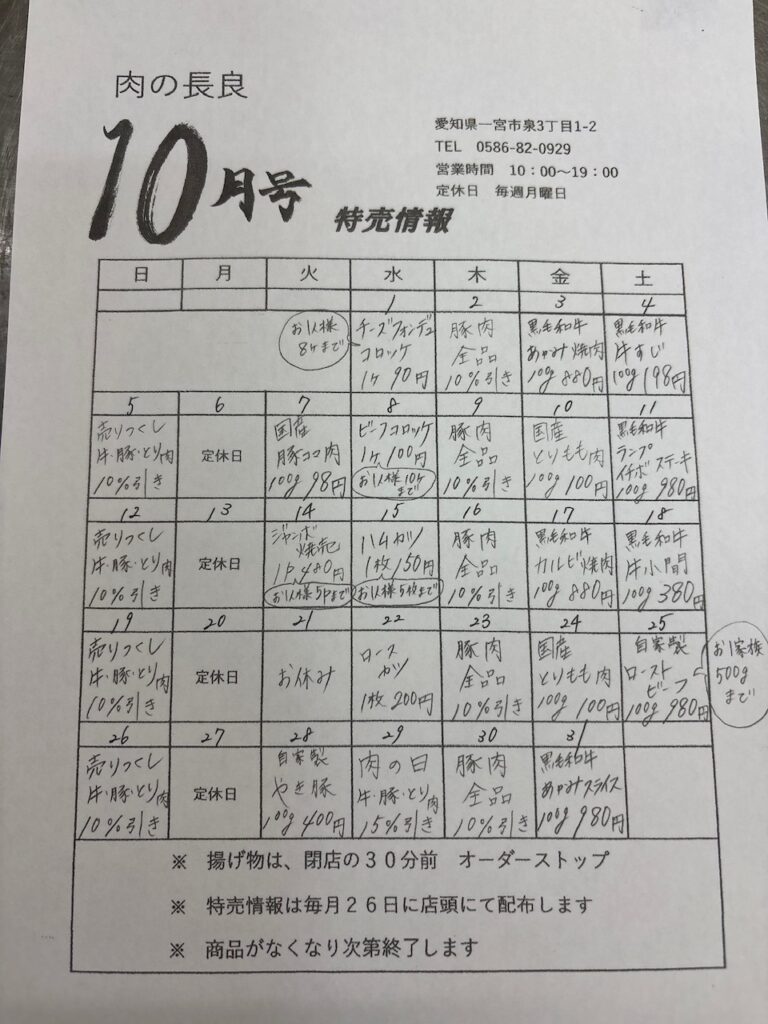 肉の長良
10月号
特売情報
愛知県一宮市泉3丁目1-2
TEL 0586-82-0929
営業時間 10：00～19：00
定休日 毎週月曜日
日 月 火 水 木 金 土
1 2 3 4
お1人様
8ヶまで
チーズフォンデュ
コロッケ
1ヶ 90円
豚肉
全品
10%引き
黒毛和牛
あかみ焼肉
100g 880円
黒毛和牛
牛すじ
100g 198円
5 6 7 8 9 10 11
売りつくし
牛・豚・とり肉
10%引き
定休日
国産
豚ココ肉
100g 98円
ビーフコロッケ
1ヶ 100円
お1人様10ヶ
まで
豚肉
全品
10%引き
国産
とりもも肉
100g 100円
黒毛和牛
ランプ
イチボ ステーキ
100g 980円
12 13 14 15 16 17 18
売りつくし
牛・豚・とり肉
10%引き
定休日
ジャンボ
焼売
1P 480円
お1人様5Pまで
ハムカツ
1枚 150円
お1人様5枚まで
豚肉
全品
10%引き
黒毛和牛
カルビ焼肉
100g 880円
黒毛和牛
牛小間
100g 380円
19 20 21 22 23 24 25
売りつくし
牛・豚・とり肉
10%引き
定休日
お休み
ロース
カツ
1枚 200円
豚肉
全品
10%引き
国産
とりもも肉
100g 100円
自家製
ロースト
ビーフ
100g 980円
お1家族
500g
まで
26 27 28 29 30 31
売りつくし
牛・豚・とり肉
10%引き
定休日
自家製
やき豚
100g 400円
肉の日
牛・豚・とり肉
15%引き
豚肉
全品
10%引き
黒毛和牛
あかみスライス
100g 980円
※ 揚げ物は、閉店の３０分前 オーダーストップ
※ 特売情報は毎月２６日に店頭にて配布します
※ 商品がなくなり次第終了します